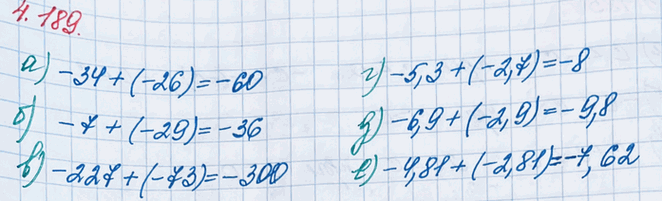 4.189.
а) -34+(-26)=-60
б) -7+(-29)=-36
в) -227+(-73)=-300
г) -5,3+(-2,7)=-8
д) -6,9+(-2,9)=-9,8
е) -4,81+(-2,81)=-7,62